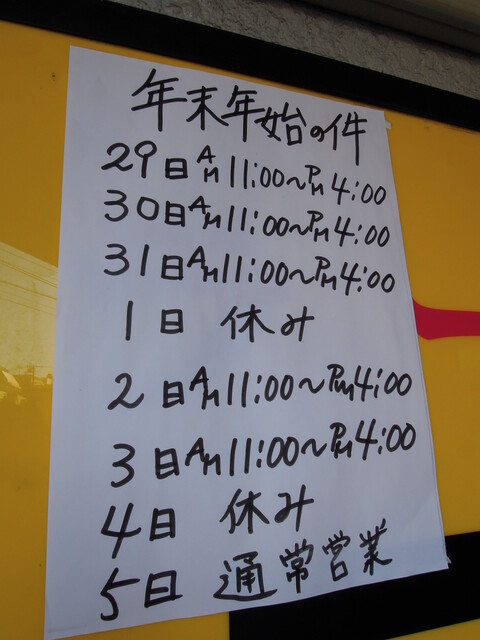 年末年始の件
29日AM11:00～PM4:00
30日AM11:00～PM4:00
31日AM11:00～PM4:00
1日 休み
2日AM11:00～PM4:00
3日AM11:00～PM4:00
4日 休み
5日 通常営業